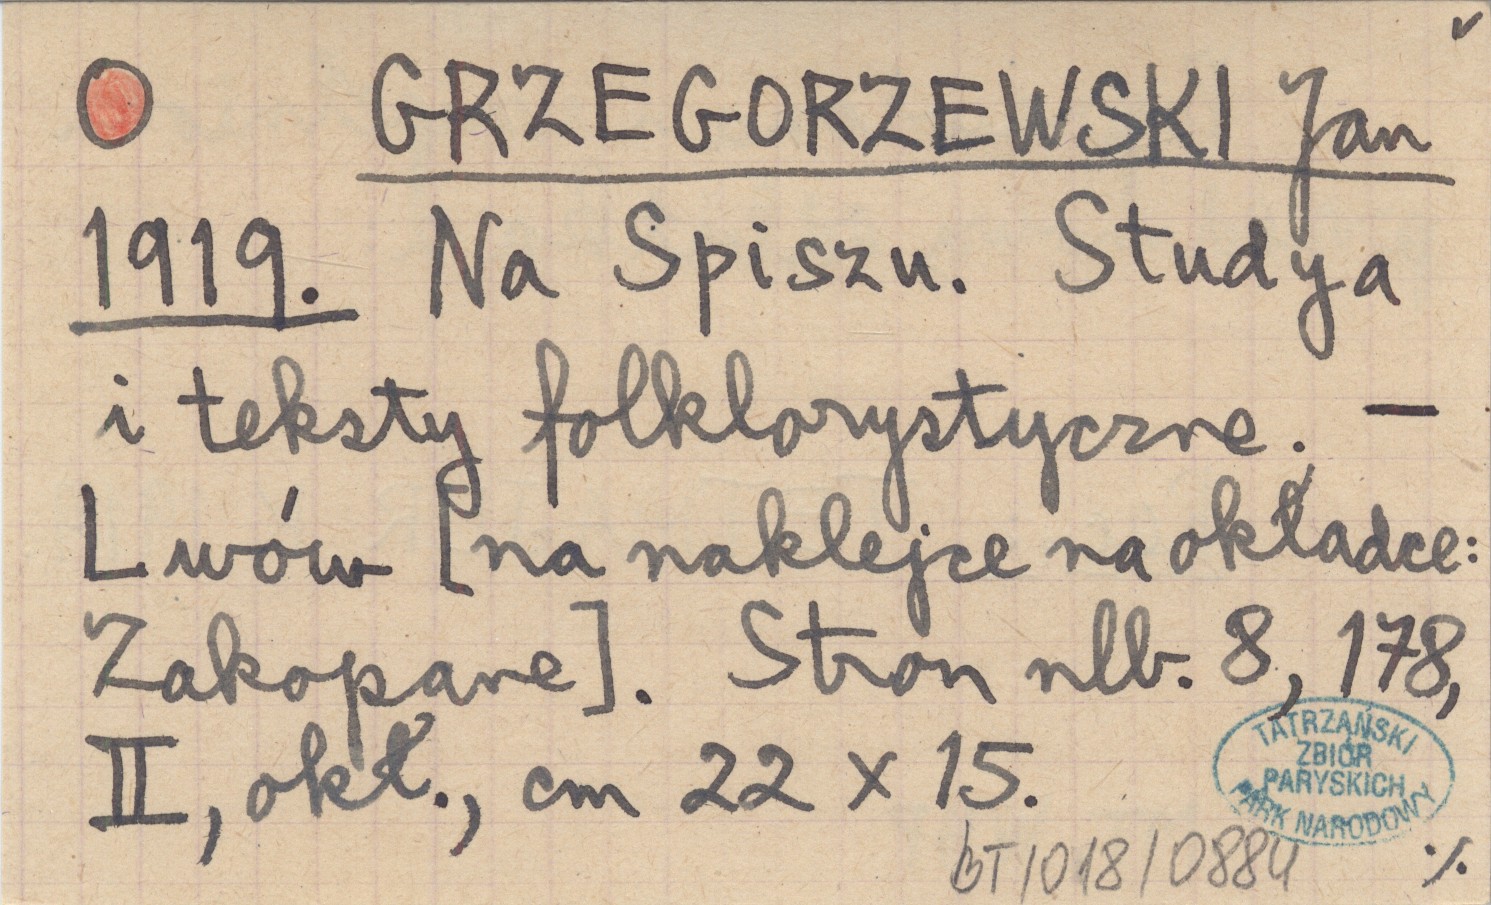 GRZEGORZEWSKI Jan
1919. Na Spiszu. Studya
i teksty folklorystyczne. —
Lwów [na naklejce na okładce:
Zakopane]. Stron nlb. 8, 178,
II, okł., cm 22 x 15.
TATRZAŃSKI
ZBIÓR
PARYSKICH
PARK NARODOWY
BT/018/0884
%